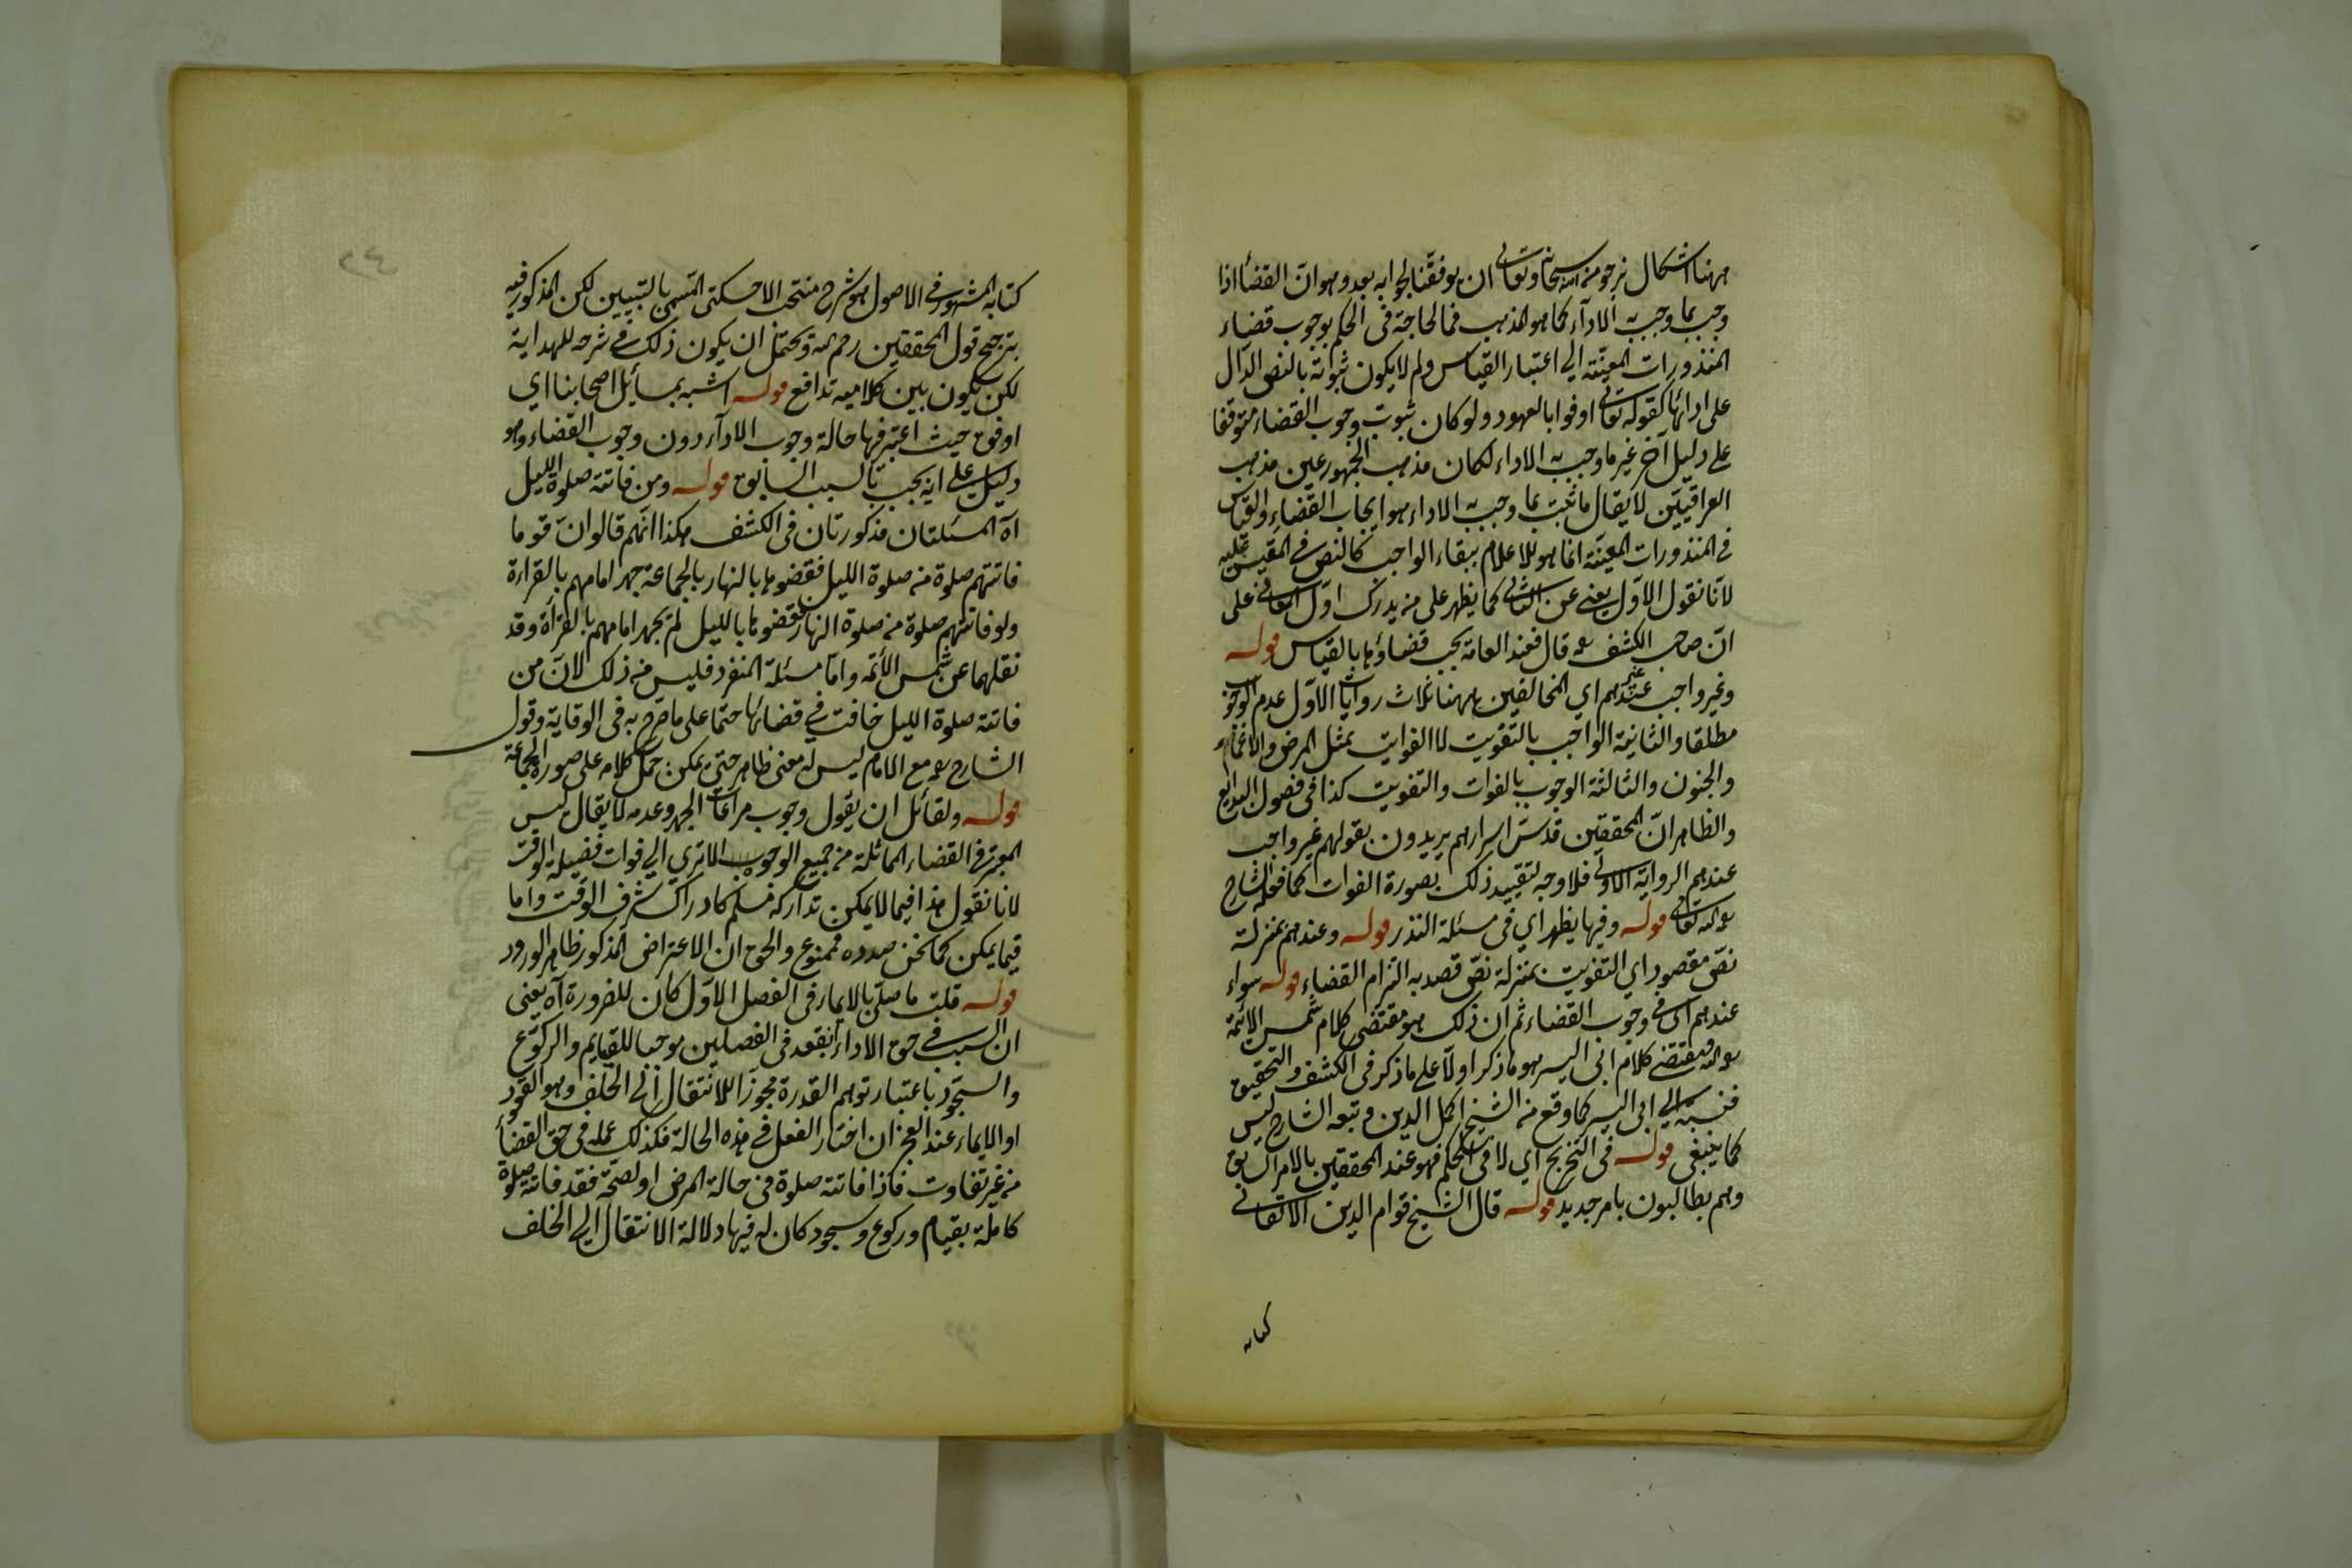 ههنا اشكال نرجو من الله سبحانه وتعالى ان يوفقنا لجوابه بعد وهو انّ القضأ اذا
وجب بما وجب به الادآء كما هو المذهب فما الحاجة فى الحكم بوجوب قضاء
المنذورات المعيّنة الى اعتبار القياس ولم لا يكون ثبوته بالنص الدّال
على ادائها كقوله تعالى اوفوا بالعهود ولو كان ثبوت وجوب القضاء متوقفا
على دليل آخر غير ما وجب به الاداء لكان مذهب الجمهور عين مذهب
العراقيّين لا يقال ما ثبت بما وجب به الاداء هو ايجاب القضاء والقياس
فى المنذورات المعيّنة انما هو للاعلام ببقاء الواجب كالنص فى المقيس عليه
لانّا نقول الاوّل يغنى عن الثانى كما يظهر على من يدرك اوّل المعانى على
انّ صاحب الكشف ره قال فعند العامة يجب قضاؤها بالقياس قوله
وغير واجب عندهم اي المخالفين ههنا ثلاث روايات الاوّل عدم الوجوب
مطلقا والثانية الواجب بالتفويت لا الفوات بمثل المرض والاغماء
والجنون والثالثة الوجوب بالفوات والتفويت كذا فى فصول البدايع
والظاهر انّ المحققين قدست اسرارهم يريدون بقولهم غير واجب
عندهم الرواية الاولى فلا وجه لتقييد ذلك بصورة الفوات كما فعله الشارح
ره الله تعالى قوله وفيها يظهر اي فى مسئلة النذر قوله وعندهم بمنزلة
نصّ مقصود اي التفويت بمنزلة نصّ قصد به التزام القضاء قوله سواء
عندهم اى فى وجوب القضاء ثم ان ذلك هو مقتضى كلام شمس الائمة
ره الله ومقتضى كلام ابى اليسر هو ما ذكر اولا على ما ذكر فى الكشف والتحقيق
فنسبته الى ابى اليسر كما وقع من الشيخ اكمل الدين وتبعه الشارح ليس
كما ينبغى قوله فى التخريج اي لا فى الحكم فهو عند المحققين بالامر السابق
وهم يطالبون بامر جديد قوله قال الشيخ قوام الدين الاتقانى
كتابه
كتابه المشهور فى الاصول هو شرح منتخب الاخسكتى المسمى بالتبيين لكن المذكور فيه
بترجيح قول المحققين رحمهم الله ويحتمل ان يكون ذلك فى شرحه للهداية
لكن يكون بين كلاميه تدافع قوله اشبه بمسائل اصحابنا اي
اوفق حيث اعتبر فيها حالة وجوب الادآء دون وجوب القضاء وهو
دليل على انه يجب بالسبب السابق قوله ومن فاتته صلوة الليل
آه المسئلتان مذكورتان فى الكشف هكذا انهم قالوا انّ قوما
فاتتهم صلوة من صلوة الليل فقضوها بالنهار بالجماعة جهر امامهم بالقراءة
ولو فاتتهم صلوة من صلوة النهار فقضوها بالليل لم يجهر امامهم بالقراءة وقد
نقلهما عن شمس الأئمه وامّا مسئلة المنفرد فليس من ذلك لانّ من
فاتته صلوة الليل خافت فى قضائها حتما على ما صرّح به فى الوقاية وقول
الشارح ره مع الامام ليس له معنى ظاهر حتى يمكن حمل كلامه على صورة الجماعة
قوله ولقائل ان يقول وجوب مراعات الجهر وعدمه لا يقال ليس
المعتبر فى القضاء المماثلة من جميع الوجوه الا ترى الى فوات فضيلة الوقت
لانا نقول هذا فيما لا يمكن تداركه فسلم كادراك شرف الوقت واما
فيما يمكن كما نحن بصدده فممنوع والحق ان الاعتراض المذكور ظاهر الورود
قوله قلت ما صلّى بالايماء فى الفصل الاوّل كان للضرورة آه يعنى
ان السبب فى حق الاداء انعقد فى الفصلين موجبا للقيام والركوع
والسجود باعتبار توهم القدرة مجوزا للانتقال الى الخلف وهو القعود
او الايماء عند العجز ان اختار الفعل فى هذه الحالة فكذلك عمله فى حق القضأ
من غير تفاوت فاذا فاتته صلوة فى حالة المرض او لصحّة فقد فاتته صلوة
كاملة بقيام وركوع وسجود كان له فيها دلالة الانتقال الى الخلف